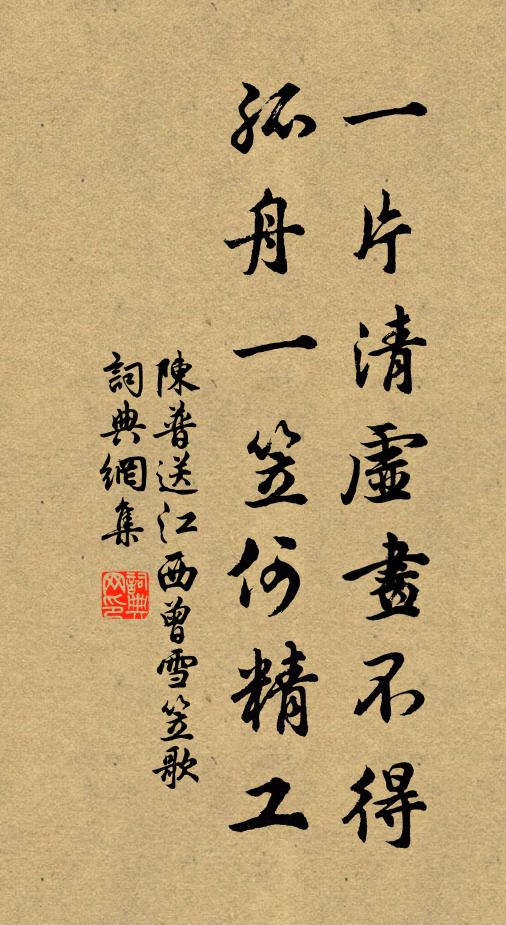 一片清虛畫不得
孤舟一笠何精工
陳普送江西曾雪笠歌
詞典網集
詞典網印